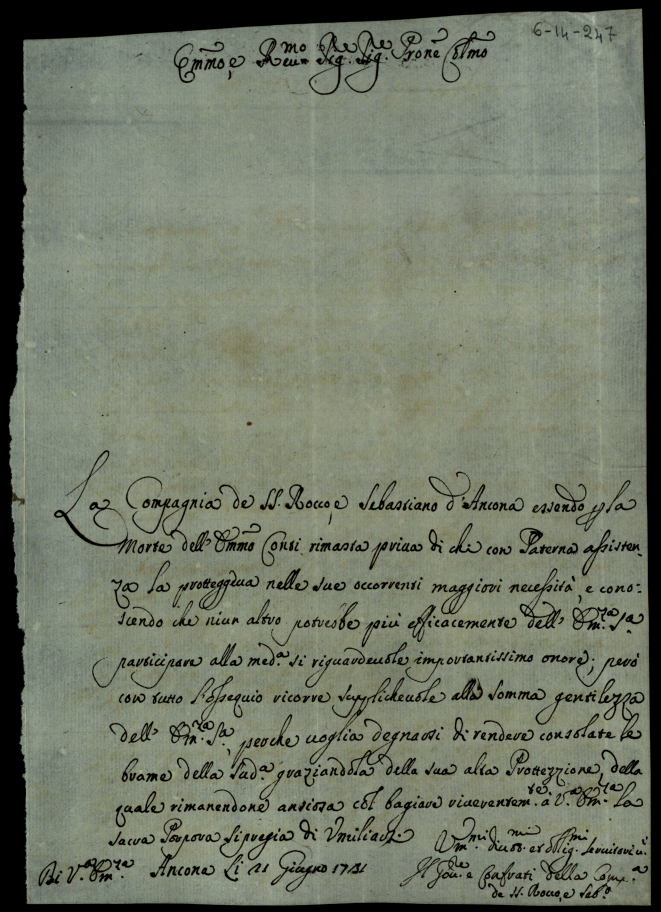 6-14-247
Emmo, e Rmo Sig.re Sig.re Prone Colmo
La Compagnia de SS. Rocco, e Sebastiano d'Ancona essendo p la
Morte dell' Emmo Conti rimasta priua di chi con Paterna assisten-
za la protteggeua nelle sue occorrenti maggiori necessità, e cono-
scendo che niun altro potrebbe più efficacemente dell' Em.za S.a
participare alla med.a sì riguardeuole importantissimo onore; però
con tutto l'ossequio ricorre supplicheuole alla somma gentilezza
dell' Em.za S.a, perche uoglia degnarsi di rendere consolate le
brame della Sud.a graziandola della sua alta Prottezzione, della
quale rimanendone ansiosa col bagiare riuerentem.te a V.a Em.za la
sacra Porpora si pregia di Vmiliars.
Ancona Li 21 Giugno 1731
Di V.a Em.za
Vm.mi Diuot.mi et oblig.mi Seruitori
Il Gou.re e Cofrati della Comp.a
de SS. Rocco, e Seb.o